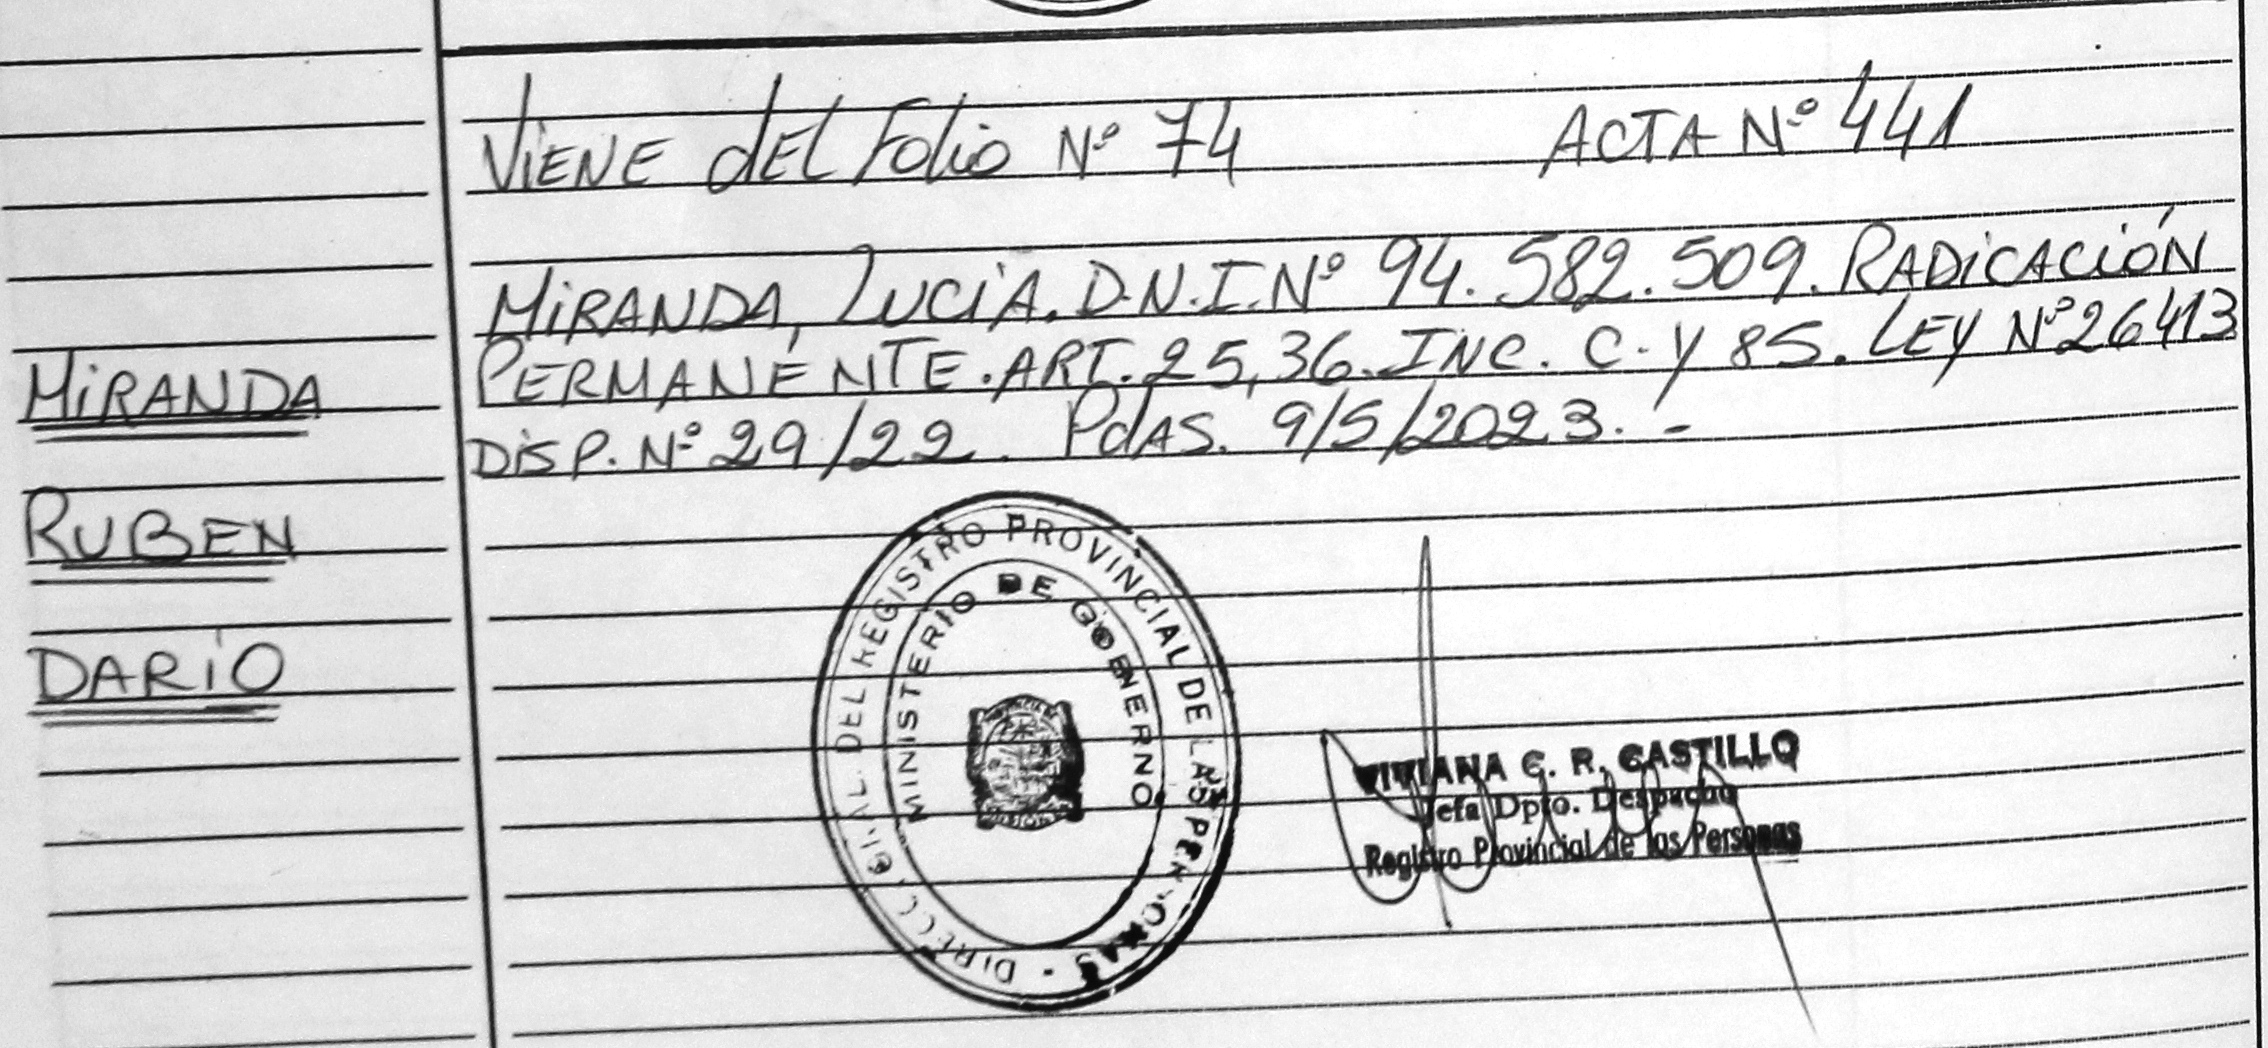 Viene del Folio Nº 74 ACTA Nº 441
MIRANDA, LUCÍA. D.N.I. Nº 94.582.509. RADICACIÓN
PERMANÉNTE. ART. 25,36. INC. C. Y 85. LEY Nº 26413
DISP. Nº 29/22. PdAS. 9/5/2023. -
MIRANDA
RUBEN
DARÍO
DIRECC. GRAL. DEL REGISTRO PROVINCIAL DE LAS PERSONAS
MINISTERIO DE GOBIERNO
VIVIANA C. R. CASTILLO
Jefa Dpto. Despacho
Registro Provincial de las Personas